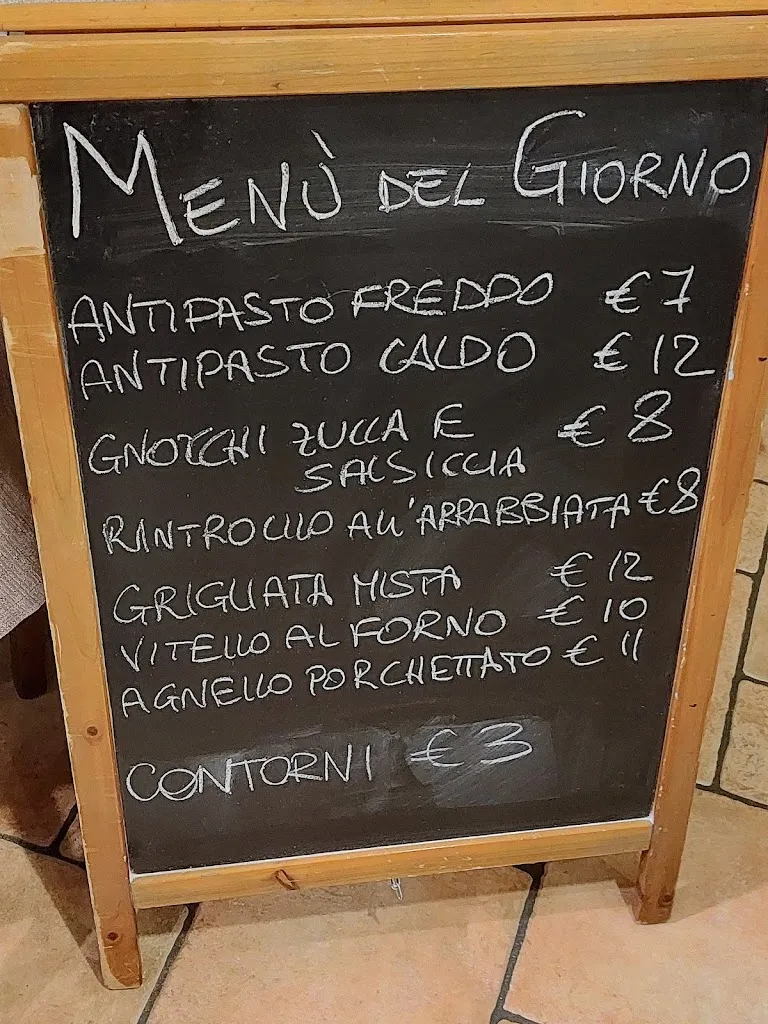 MENÙ DEL GIORNO
ANTIPASTO FREDDO € 7
ANTIPASTO CALDO € 12
GNOCCHI ZUCCA E € 8
SALSICCIA
RINTROCILO ALL'ARRABBIATA € 8
GRIGLIATA MISTA € 12
VITELLO AL FORNO € 10
AGNELLO PORCHETTATO € 11
CONTORNI € 3